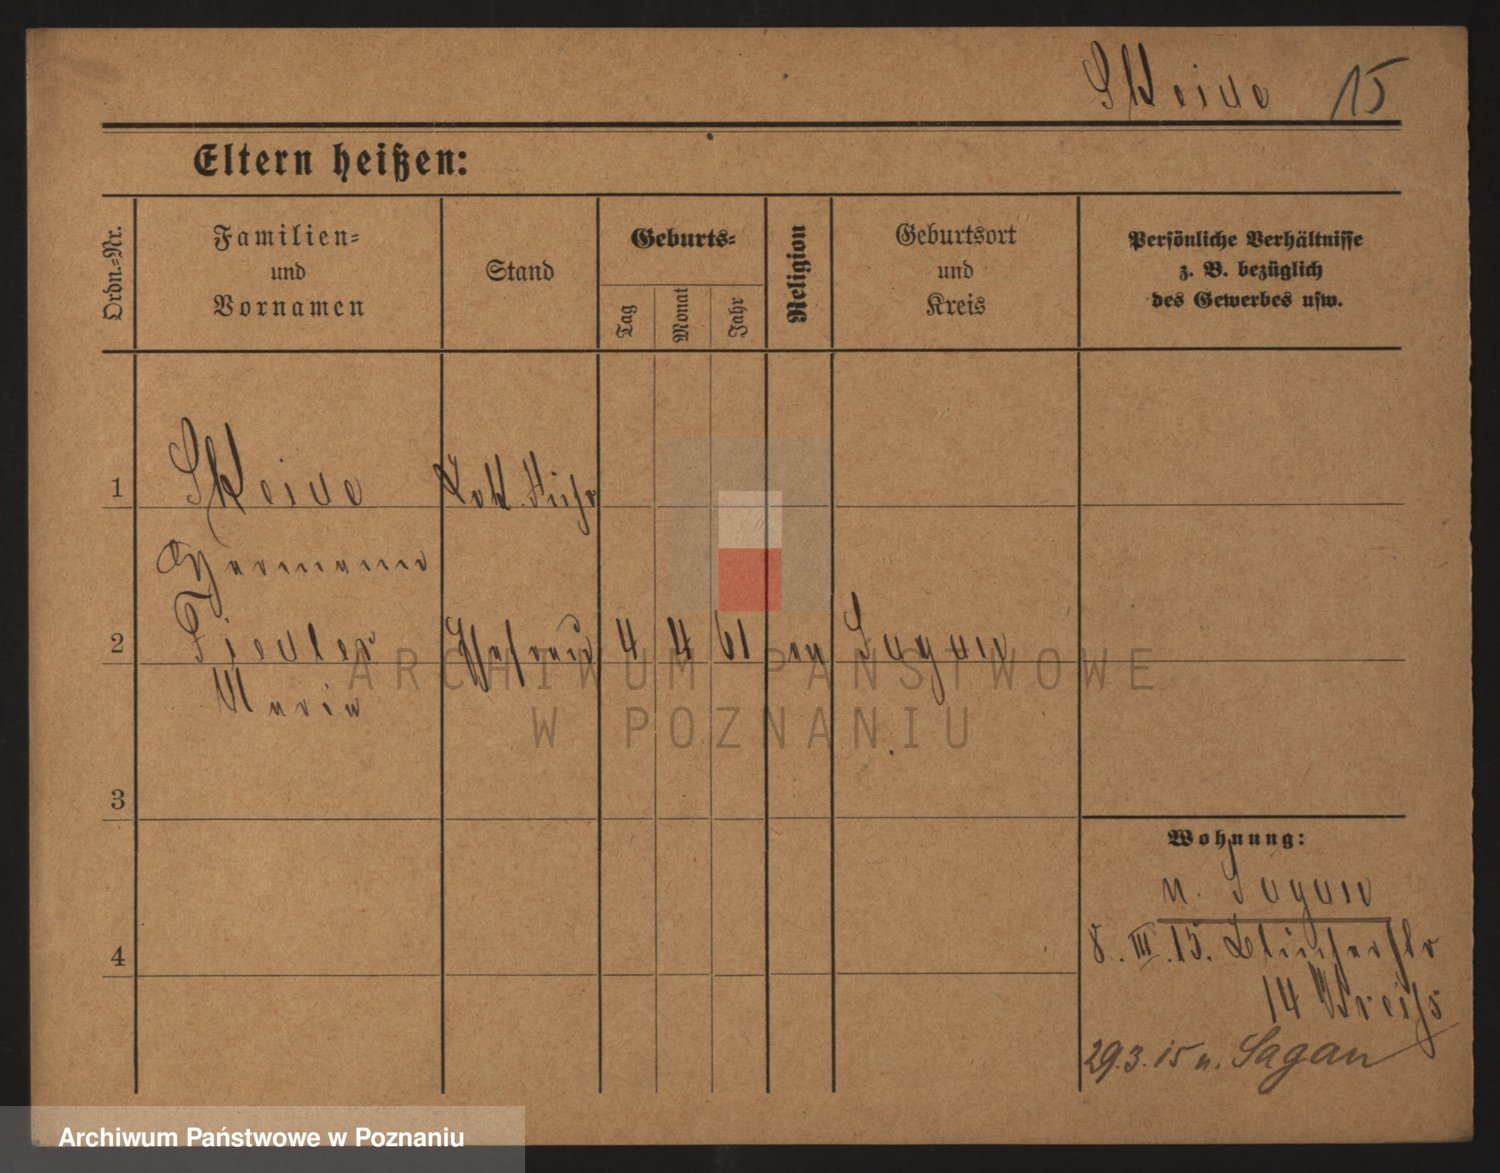 Skeide 15
Eltern heißen:
Ordn.-Nr.
Familien-
und
Vornamen
Stand
Geburts-
Tag
Monat
Jahr
Religion
Geburtsort
und
Kreis
Persönliche Verhältnisse
z. B. bezüglich
des Gewerbes usw.
1 Skeide Lok. Führ
Hermann
2 Fiedler Ehefrau 4 4 61 ev Sagan
Maria
ARCHIWUM PAŃSTWOWE
W POZNANIU
3
Wohnung:
n. Sagan
8. III. 15. Blücherstr
14
4
29.3.15 n. Sagan
Archiwum Państwowe w Poznaniu